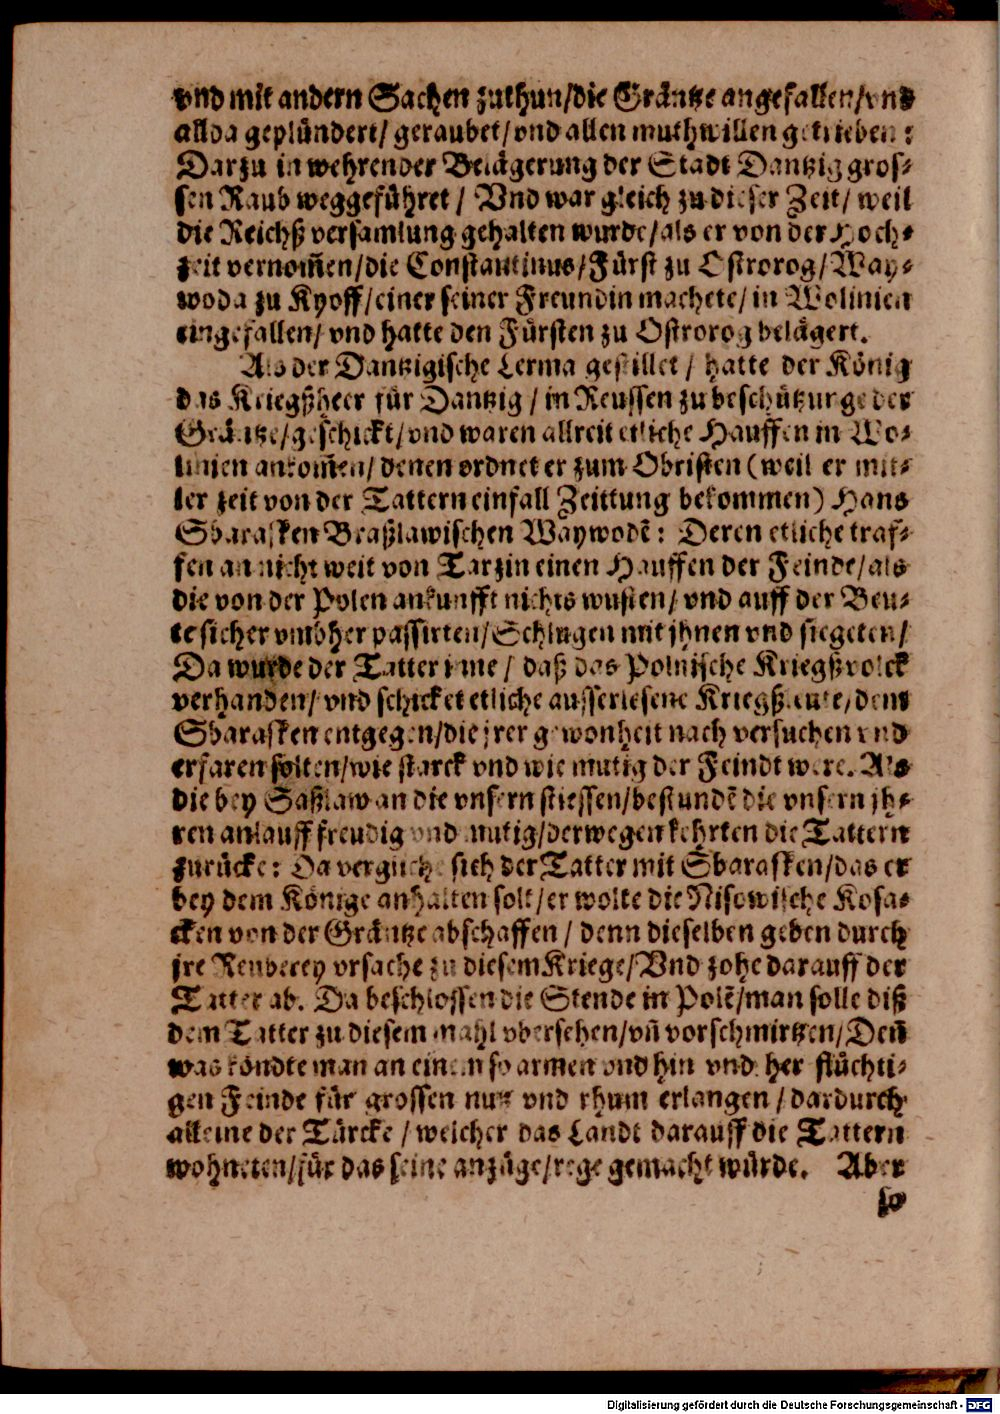 vnd mit andern Sachen zuthun/die Gräntze angefallen/vnd
allda geplündert/ geraubet/vnd allen muthwillen getrieben:
Darzu in wehrender Belägerung der Stadt Dantzig gros-
sen Raub weggeführet / Vnd war gleich zu dieser Zeit/ weil
die Reichß versamlung gehalten wurde/als er von der Hoch-
zeit vernom̃en/die Constantinus/Fürst zu Ostrorog/Way-
woda zu Kyoff/einer seiner Freundin machete/in Wolinien
eingefallen/ vnd hatte den Fürsten zu Ostrorog belägert.
Als der Dantzigische Lerma gestillet / hatte der König
das Kriegßheer für Dantzig / in Reussen zu beschützunge der
Gräntze/geschickt/vnd waren allreit etliche Hauffen in Wo-
linien ankom̃en/ denen ordnet er zum Obristen (weil er mit-
ler zeit von der Tattern einfall Zeittung bekommen) Hans
Sbarasken Braßlawischen Waywodē: Deren etliche traf-
fen an nicht weit von Tarzin einen Hauffen der Feinde/als
die von der Polen ankunfft nichts wusten/ vnd auff der Beu-
te sicher vmbher passirten/Schlugen mit jhnen vnd siegeten/
Da wurde der Tatter inne / daß das Polnische Kriegßvolck
verhanden/ vnd schicket etliche ausserlesene Kriegßleute/dem
Sbarasken entgegen/die jrer gewonheit nach versuchen vnd
erfaren solten/wie starck vnd wie mutig der Feindt were. Als
die bey Saßlaw an die vnsern stiessen/bestundē die vnsern jh-
ren anlauff freudig vnd mutig/derwegen kehrten die Tattern
zurücke: Da vergliche sich der Tatter mit Sbarasken/das er
bey dem Könige anhalten solt/er wolte die Nisowische Kosa-
cken von der Gräntze abschaffen / denn dieselben geben durch
jre Reuberey vrsache zu diesem Kriege/Vnd zohe darauff der
Tatter ab. Da beschlossen die Stende in Polē/man solle diß
dem Tatter zu diesem mahl vbersehen/vn̄ vorschmirtzen/Den̄
was köndte man an einem so armen vnd hin vnd her flüchti-
gen Feinde für grossen nutz vnd rhum erlangen / dardurch
alleine der Türcke / welcher das Landt darauff die Tattern
wohneten/für das seine anzüge/rege gemacht würde. Aber
so
Digitalisierung gefördert durch die Deutsche Forschungsgemeinschaft - DFG